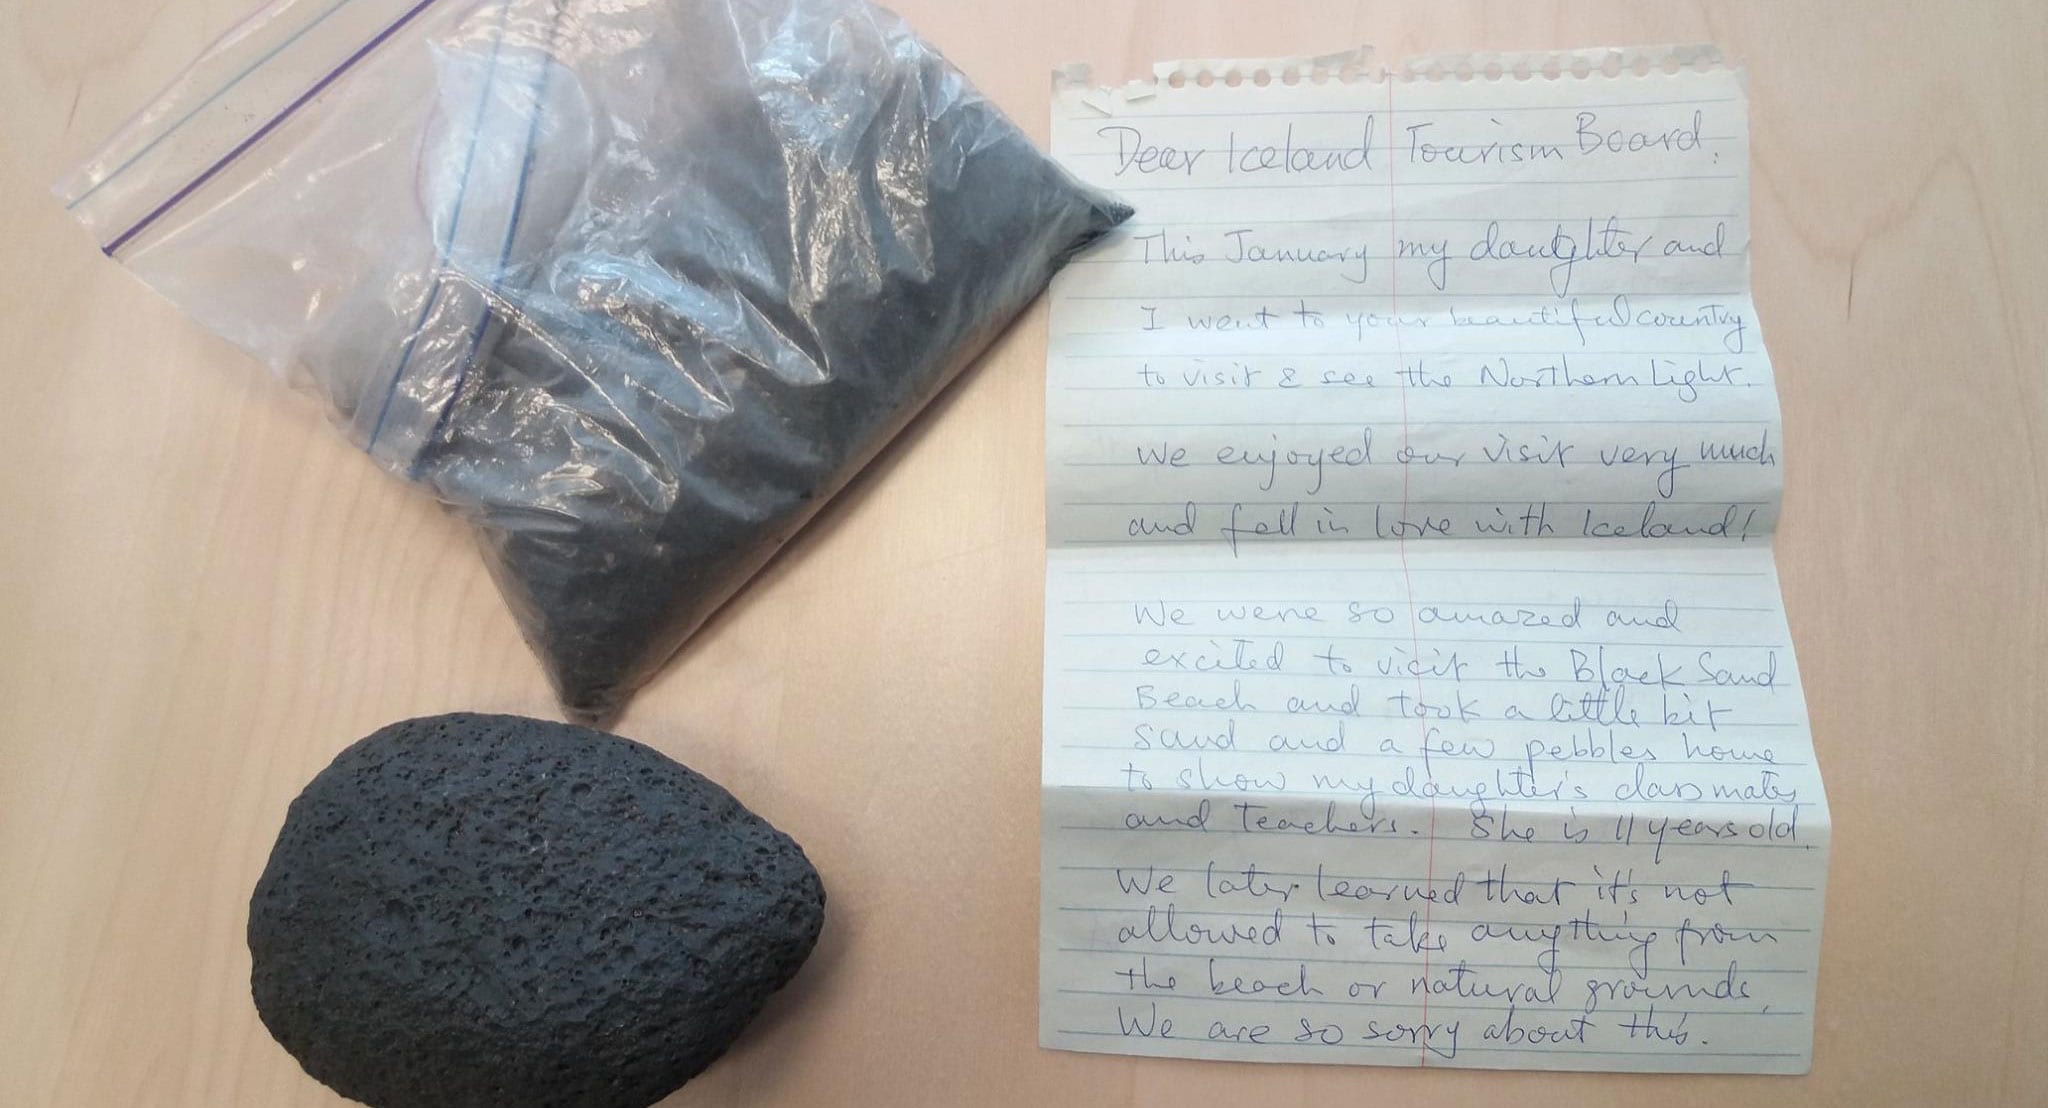 Dear Iceland Tourism Board,
This January my daughter and
I went to your beautiful country
to visit & see the Northern Light.
We enjoyed our visit very much
and fell in love with Iceland!
We were so amazed and
excited to visit the Black Sand
Beach and took a little bit
sand and a few pebbles home
to show my daughter's classmates
and teachers. She is 11 years old.
We later learned that it's not
allowed to take anything from
the beach or natural grounds.
We are so sorry about this.